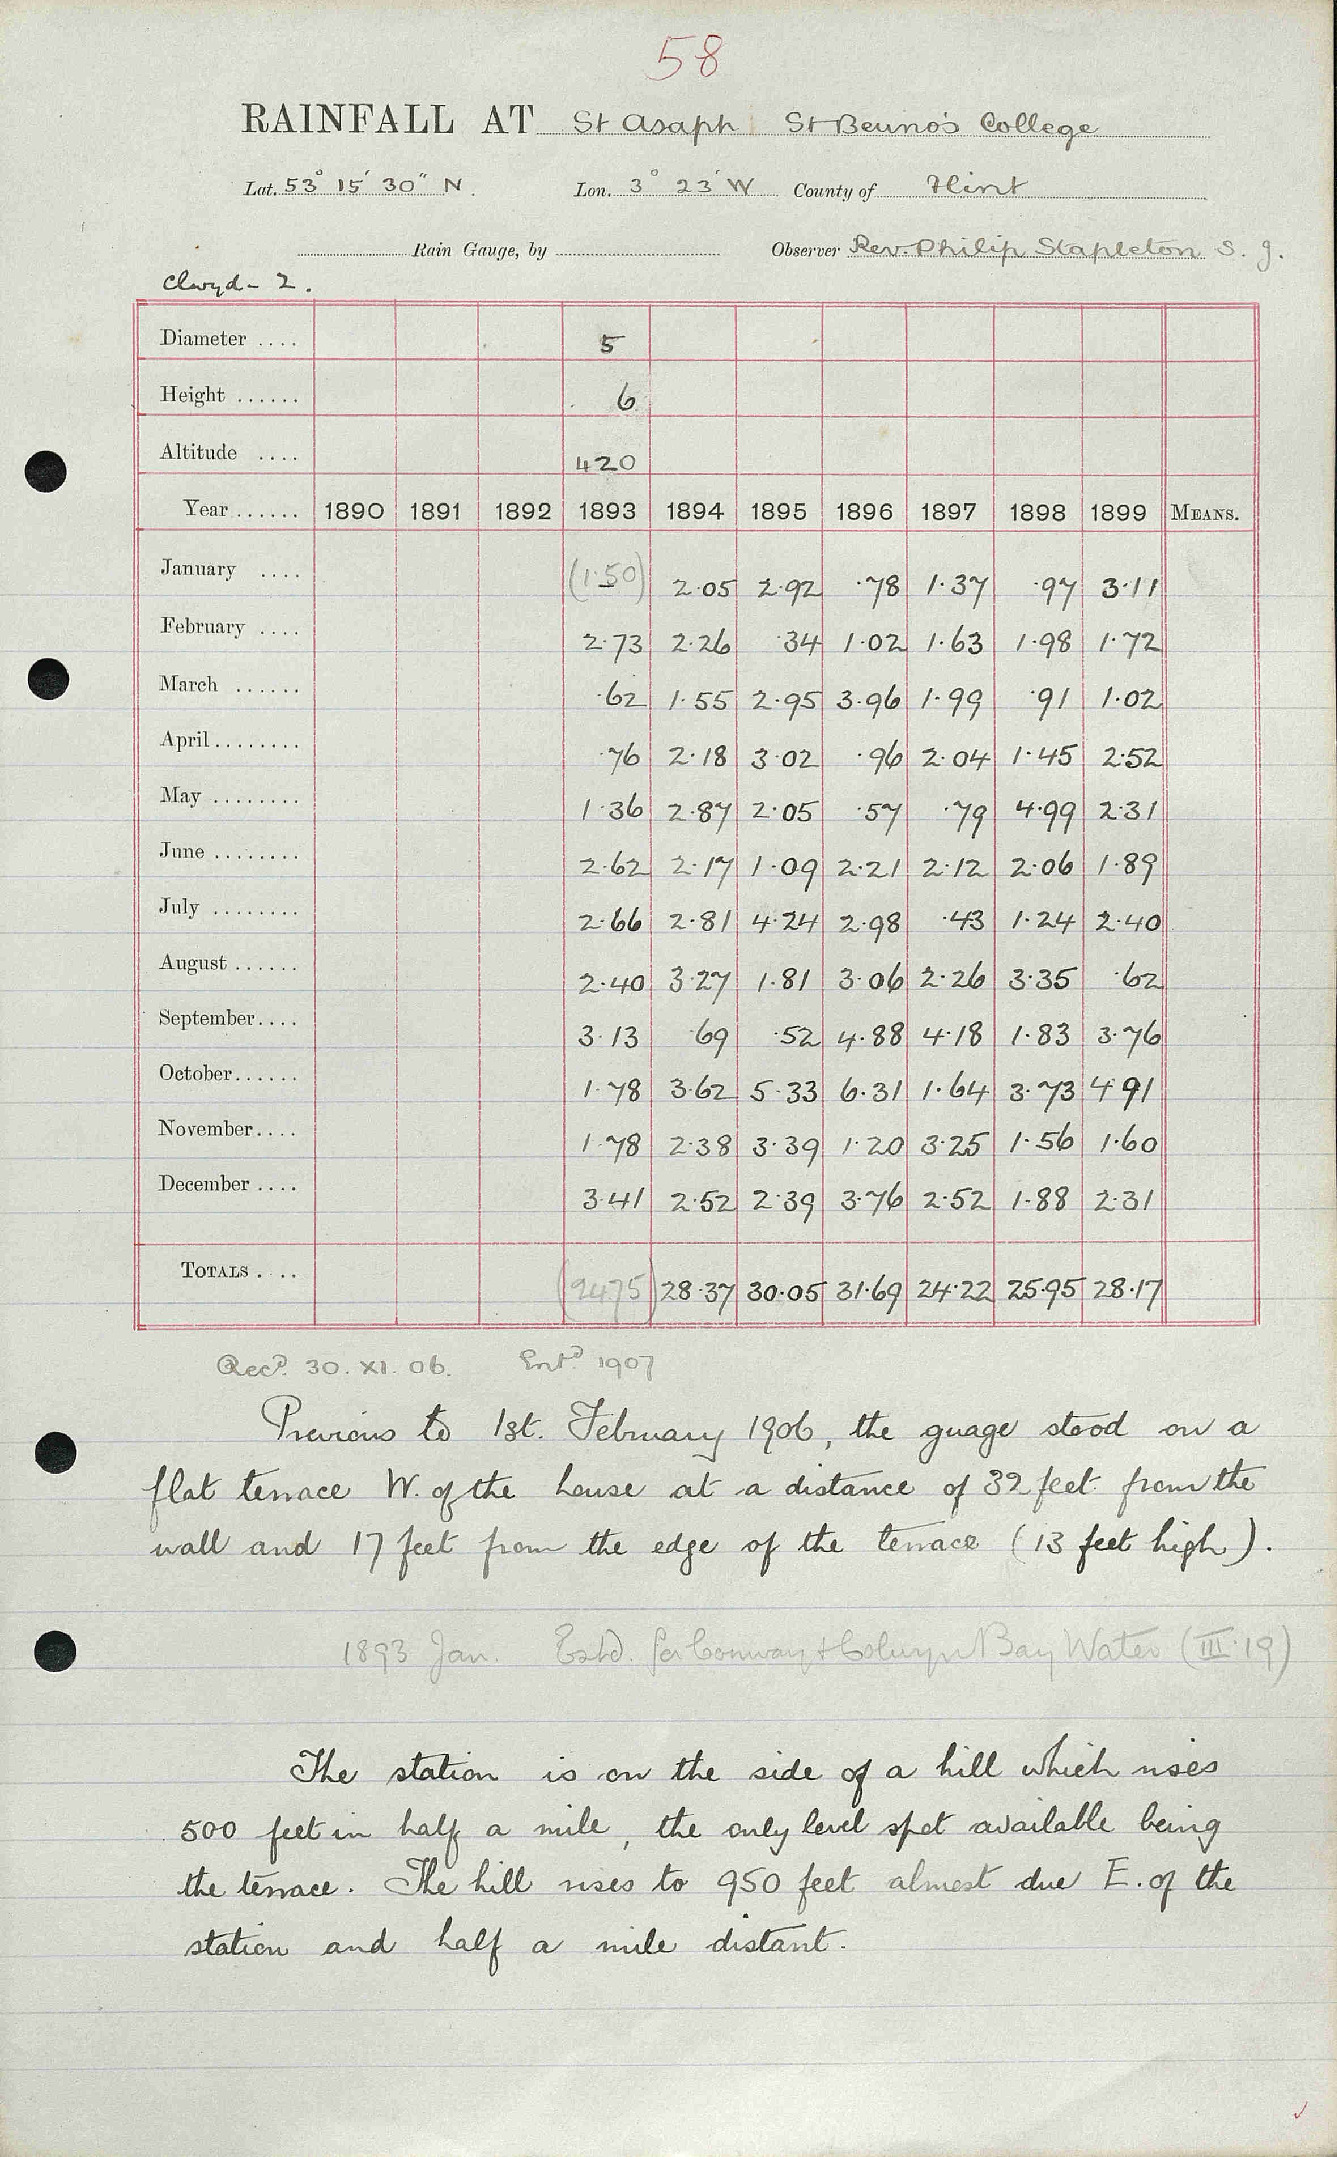 58
RAINFALL AT St Asaph St Beuno's College
Lat. 53° 15' 30" N. Lon. 3° 23' W County of Flint
Rain Gauge, by Observer Rev. Philip Stapleton S. J.
Clwyd - 2.
Diameter .... 5
Height ...... 6
Altitude .... 420
Year ...... 1890 1891 1892 1893 1894 1895 1896 1897 1898 1899 MEANS.
January .... (1.50) 2.05 2.92 .78 1.37 .97 3.11
February .... 2.73 2.26 .34 1.02 1.63 1.98 1.72
March ...... .62 1.55 2.95 3.96 1.99 .91 1.02
April........ .76 2.18 3.02 .96 2.04 1.45 2.52
May ........ 1.36 2.87 2.05 .57 .79 4.99 2.31
June ........ 2.62 2.17 1.09 2.21 2.12 2.06 1.89
July ........ 2.66 2.81 4.24 2.98 .43 1.24 2.40
August ...... 2.40 3.27 1.81 3.06 2.26 3.35 .62
September.... 3.13 .69 .52 4.88 4.18 1.83 3.76
October...... 1.78 3.62 5.33 6.31 1.64 3.73 4.91
November.... 1.78 2.38 3.39 1.20 3.25 1.56 1.60
December .... 3.41 2.52 2.39 3.76 2.52 1.88 2.31
TOTALS .... (24.75) 28.37 30.05 31.69 24.22 25.95 28.17
Recd. 30. XI. 06. Entd 1907
Previous to 1st. February 1906, the guage stood on a
flat terrace W. of the house at a distance of 32 feet from the
wall and 17 feet from the edge of the terrace (13 feet high).
1893 Jan. Estd. for Conway & Colwyn Bay Water (III.19)
The station is on the side of a hill which rises
500 feet in half a mile, the only level spot available being
the terrace. The hill rises to 950 feet almost due E. of the
station and half a mile distant.